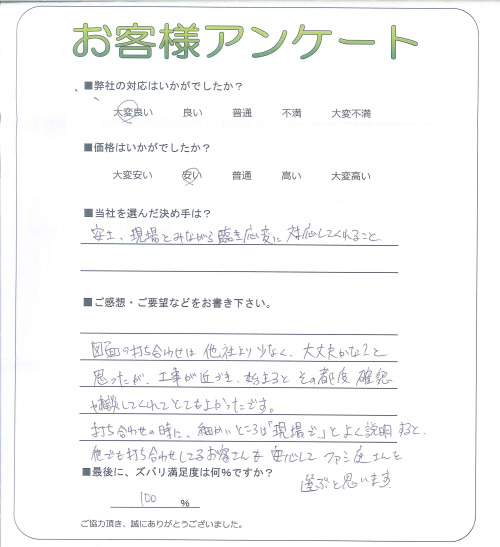 お客様アンケート
■弊社の対応はいかがでしたか？
大変良い 良い 普通 不満 大変不満
■価格はいかがでしたか？
大変安い 安い 普通 高い 大変高い
■当社を選んだ決め手は？
安土、現場とみながら臨き応変に対応してくれること
■ご感想・ご要望などをお書き下さい。
図面の打ち合わせは他社より少なく、大丈夫かな？と
思ったが、工事が近づき、始まるとその都度確認
相談してくれてとてもよかったです。
打ち合わせの時に、細かいところは「現場で」とよく説明すると、
他でも打ち合わせしてるお客さんも安心してファミ庭さんを
選ぶと思います。
■最後に、ズバリ満足度は何％ですか？
100 %
ご協力頂き、誠にありがとうございました。